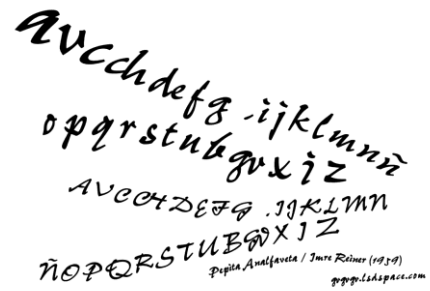 avcchdefg.ijklmnñ
opqrstubgvxiz
AVCCHDEFG.IJKLMN
ÑOPQRSTUBGVXIZ
Pepita Analfaveta / Imre Reiner (1959)
gogogo.lshspace.com